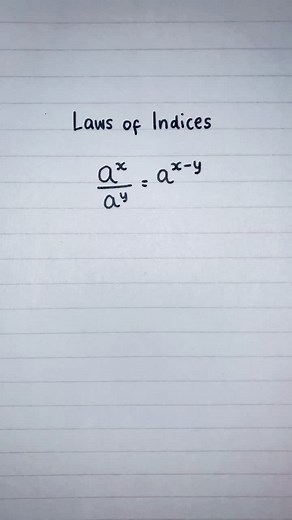 Laws of Indices
aˣ/aʸ = aˣ⁻ʸ